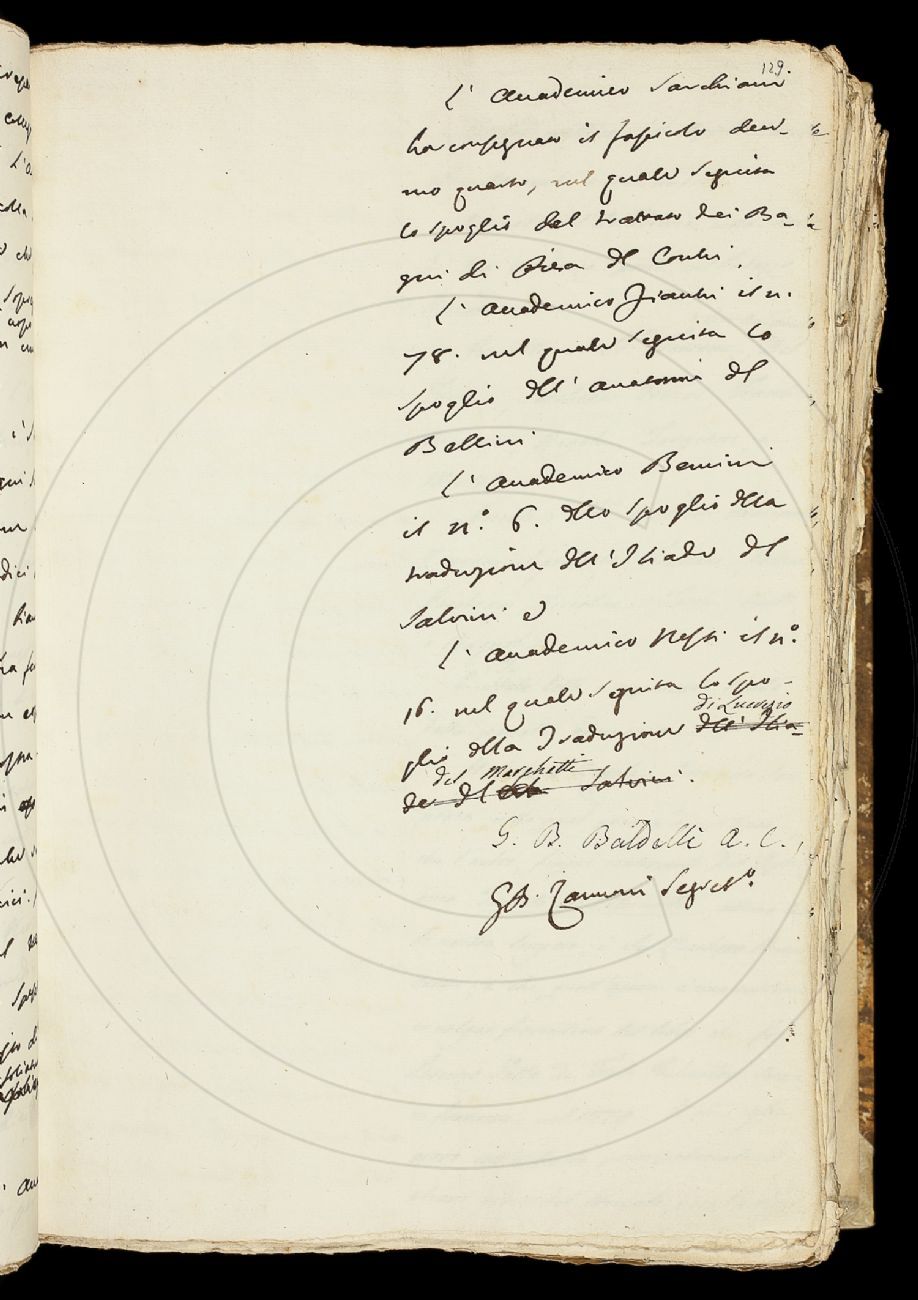 129.
L' Academico Sarchiani
ha consegnato il fascicolo deci-
mo quarto, nel quale seguita
lo spoglio del trattato dei Ba-
gni di Pisa del Cocchi.
L' Academico Fiacchi il n.
78. nel quale seguita lo
spoglio dell' anatomia del
Bellini
L' Academico Bencini
il n.° 6. dello spoglio della
traduzione dell' Iliade del
Salvini e
L' Academico Nesti il n.°
16. nel quale seguita lo spo-
di Lucrezio
glio della Traduzione dell' Ilia-
del Marchetti
de del Salvini.
G. B. Baldelli A. C.
GB. Zannoni Segret.°